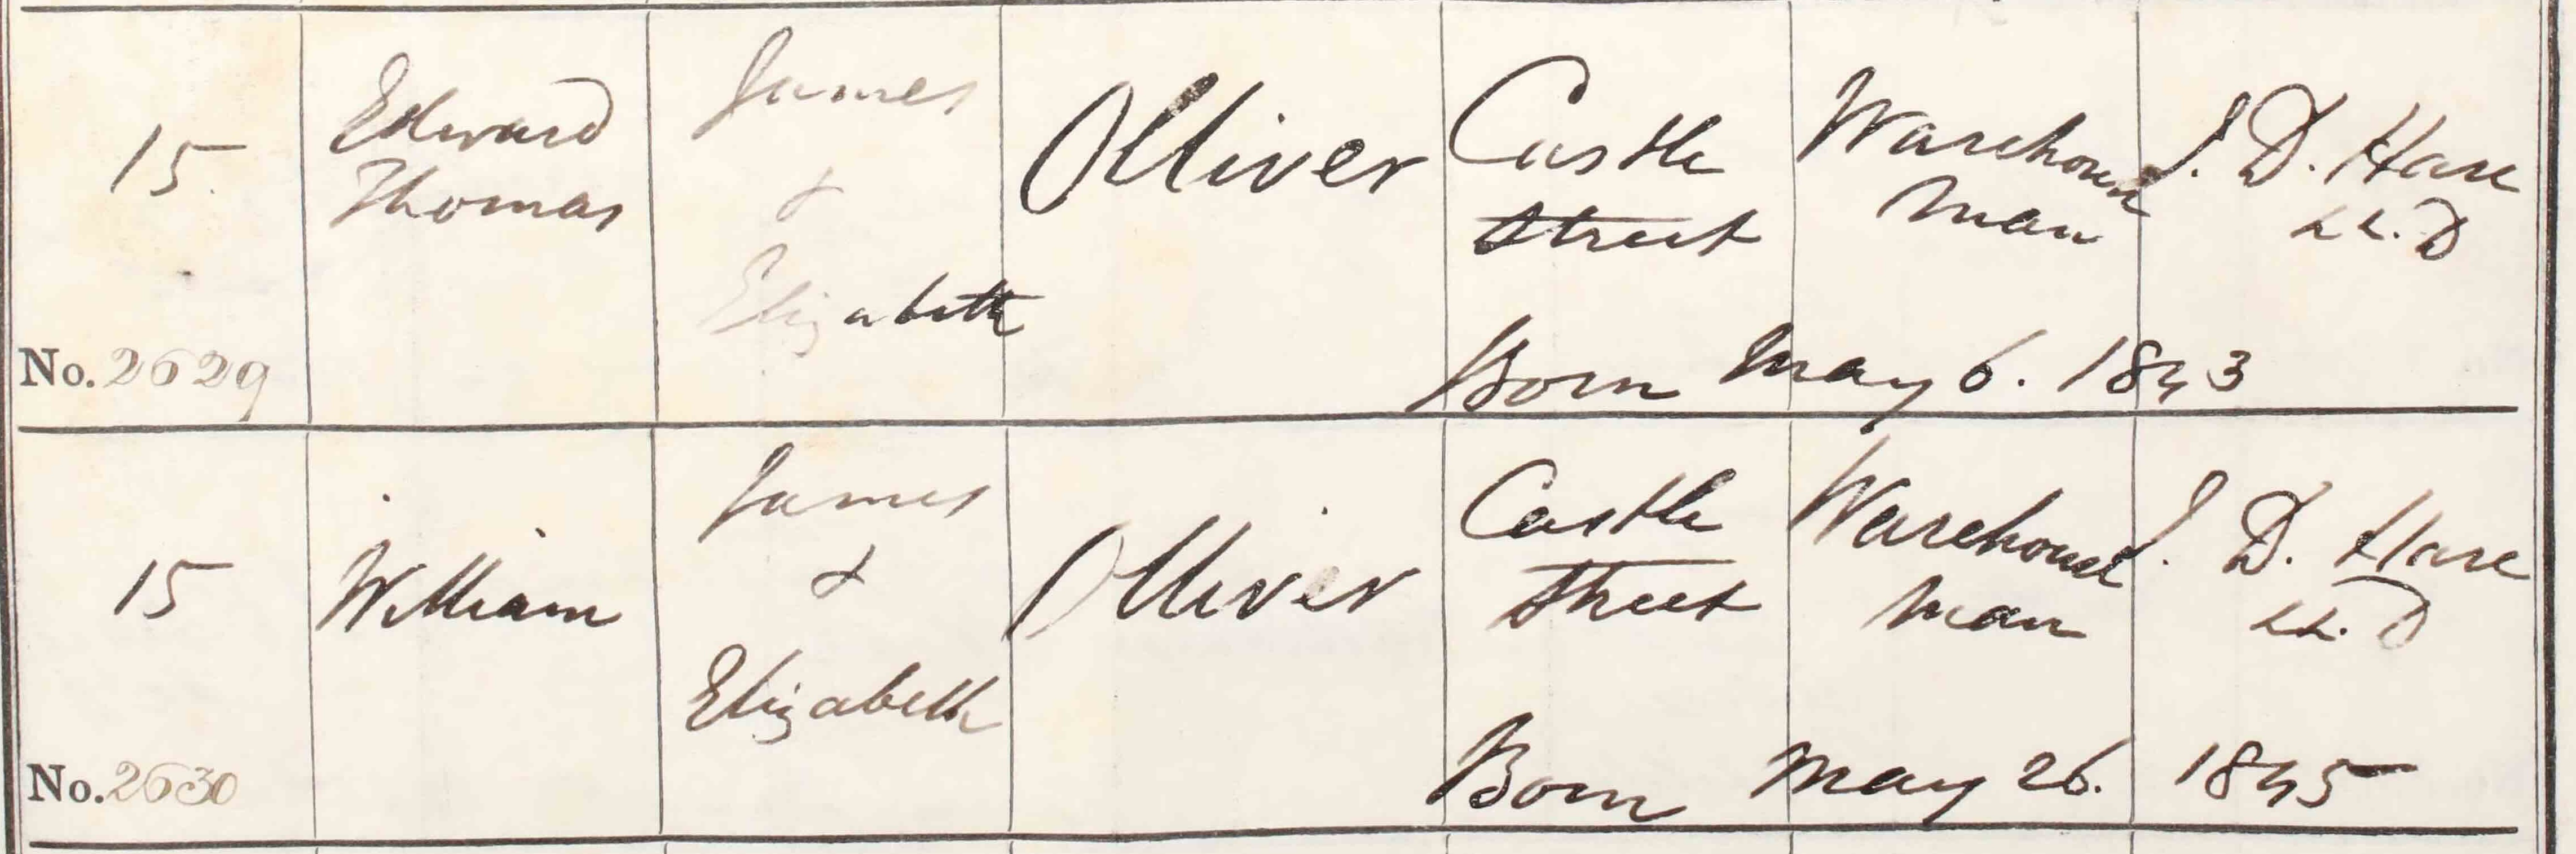 15
Edward
Thomas
James
&
Elizabeth
Olliver
Castle
Street
Warehouse
man
J. D. Hase
LL.D
Born May 6. 1843
No. 2629
15
William
James
&
Elizabeth
Olliver
Castle
Street
Warehouse
man
J. D. Hase
LL.D
Born May 26. 1845
No. 2630